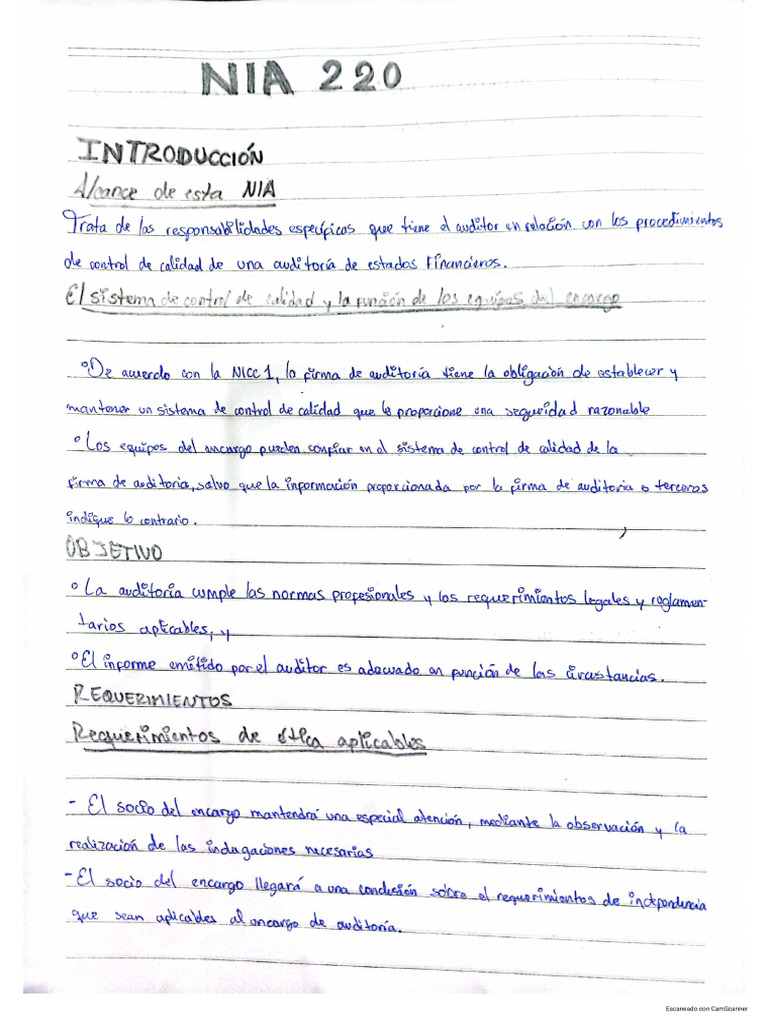 NIA 220
INTRODUCCIÓN
Alcance de esta NIA
Trata de las responsabilidades específicas que tiene el auditor en relación con los procedimientos
de control de calidad de una auditoría de estados Financieros.
El sistema de control de calidad y la función de los equipos del encargo
°De acuerdo con la NICC1, la firma de auditoría tiene la obligación de establecer y
mantener un sistema de control de calidad que le proporcione una seguridad razonable
°Los equipos del encargo pueden confiar en el sistema de control de calidad de la
firma de auditoria, salvo que la información proporcionada por la firma de auditoria o terceros
indique lo contrario.
OBJETIVO
°La auditoría cumple las normas profesionales y los requerimientos legales y reglamen-
tarios aplicables, y
°El informe emitido por el auditor es adecuado en función de las circustancias.
REQUERIMIENTOS
Requerimientos de ética aplicables
- El socio del encargo mantendrá una especial atención, mediante la observación y la
realización de las indagaciones necesarias
- El socio del encargo llegará a una conclusión sobre el requerimientos de independencia
que sean aplicables al encargo de auditoría.
Escaneado con CamScanner